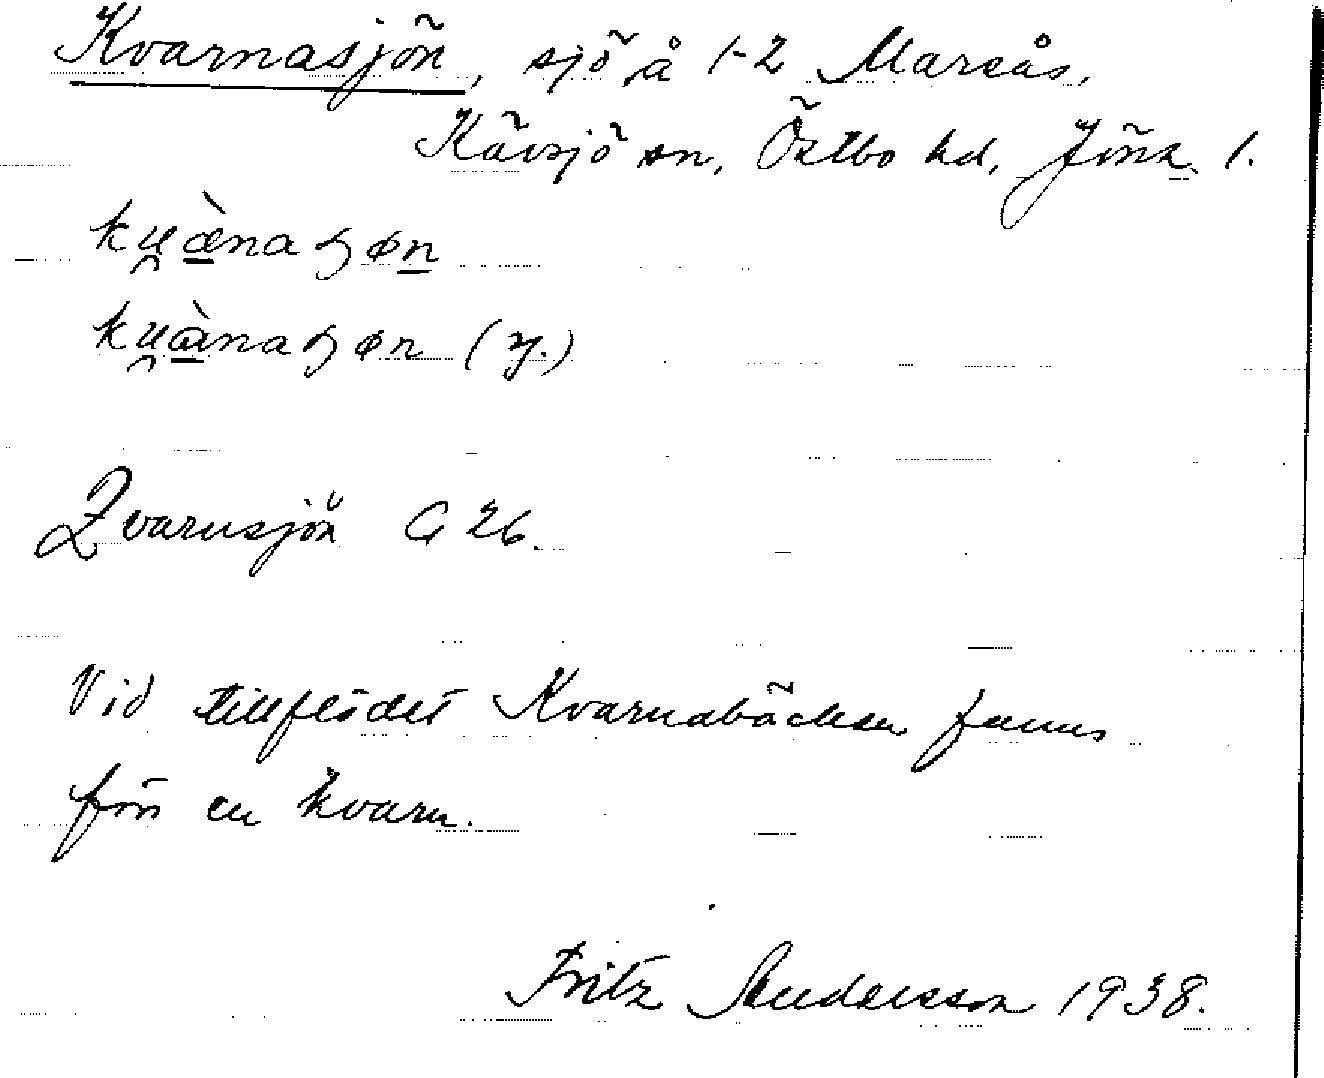 Kvarnasjön, sjö å 1-2 Marsås,
Kävsjö sn, Östbo hd, Jönk. l.
ku̯æ̀naɧøn
ku̯ànaɧøn (y.)
Qvarnsjön G 26.
Vid tillflödet Kvarnabäcken fanns
förr en kvarn.
Fritz Andersson 1938.